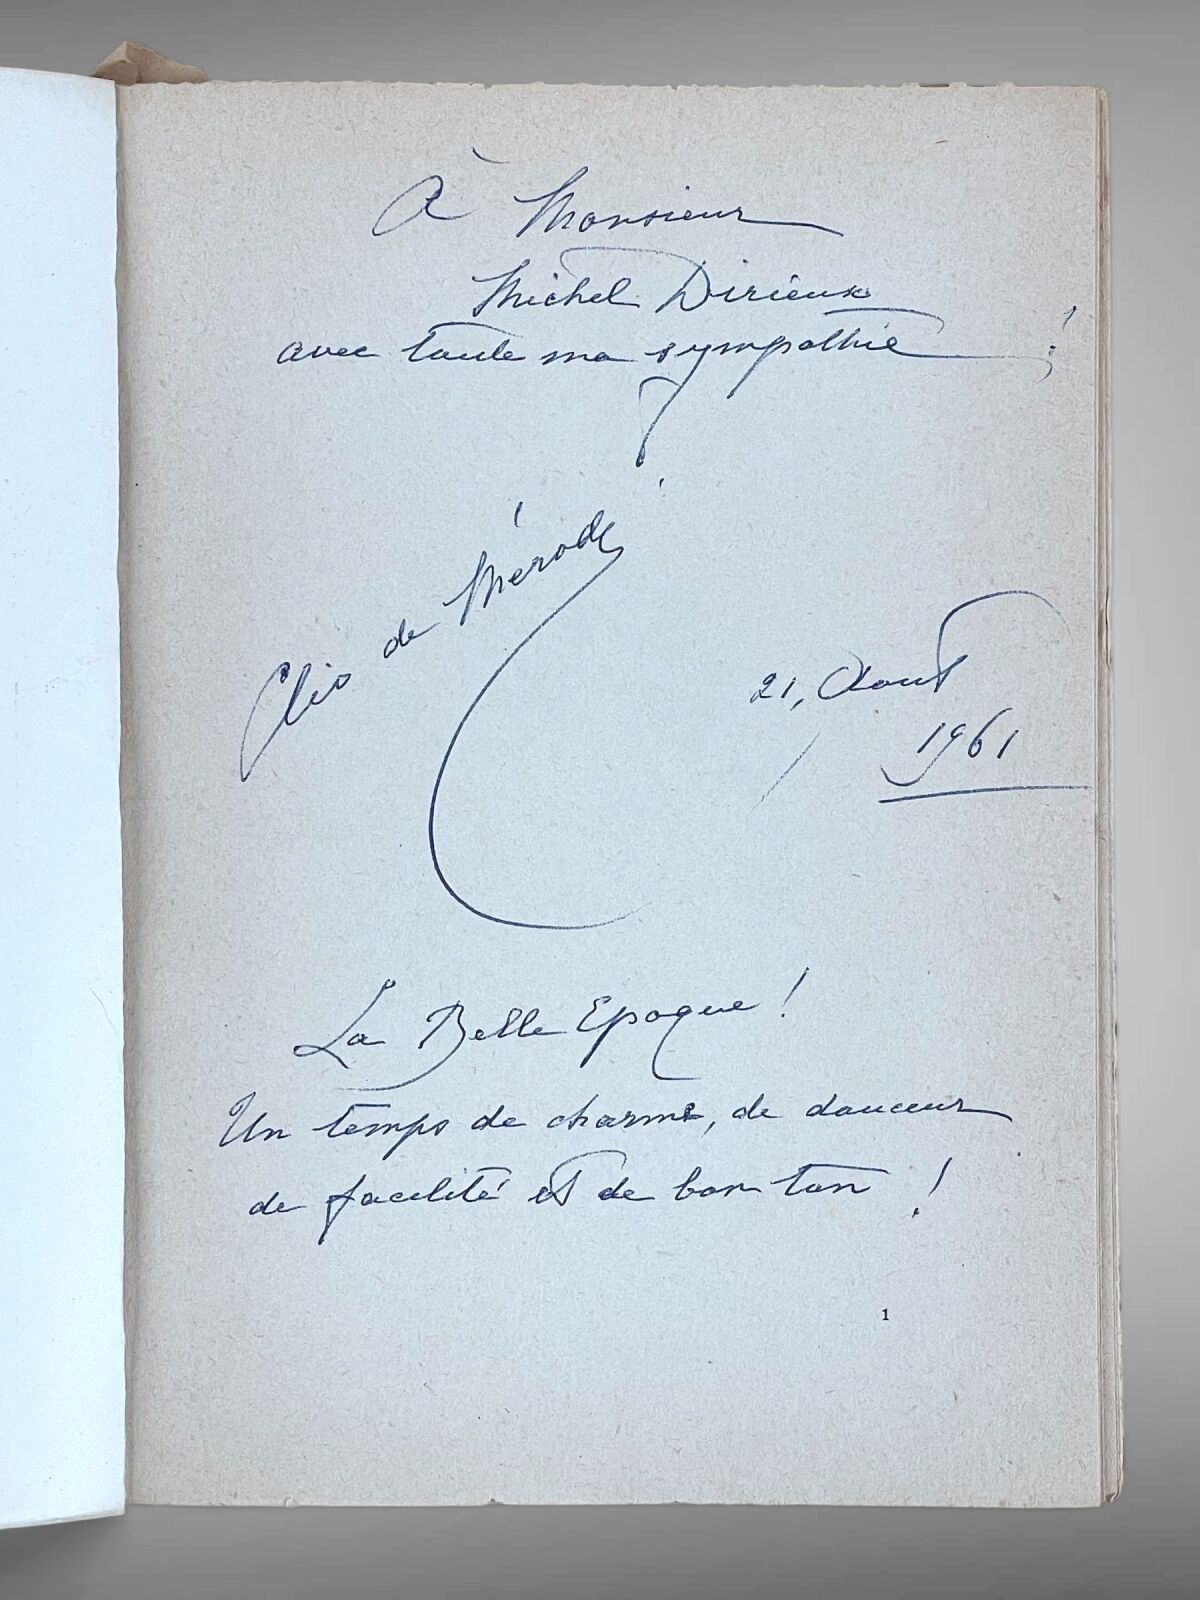 À Monsieur
Michel Dirieux
avec toute ma sympathie !
Cléo de Mérode
21, Aout
1961
La Belle Epoque !
Un temps de charme, de douceur
de facilité et de bon ton !
1